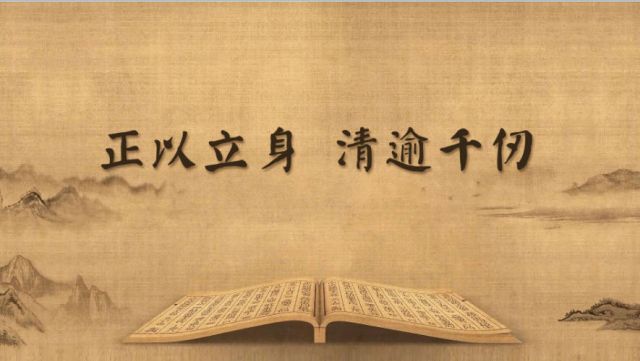 正以立身 清逾千仞